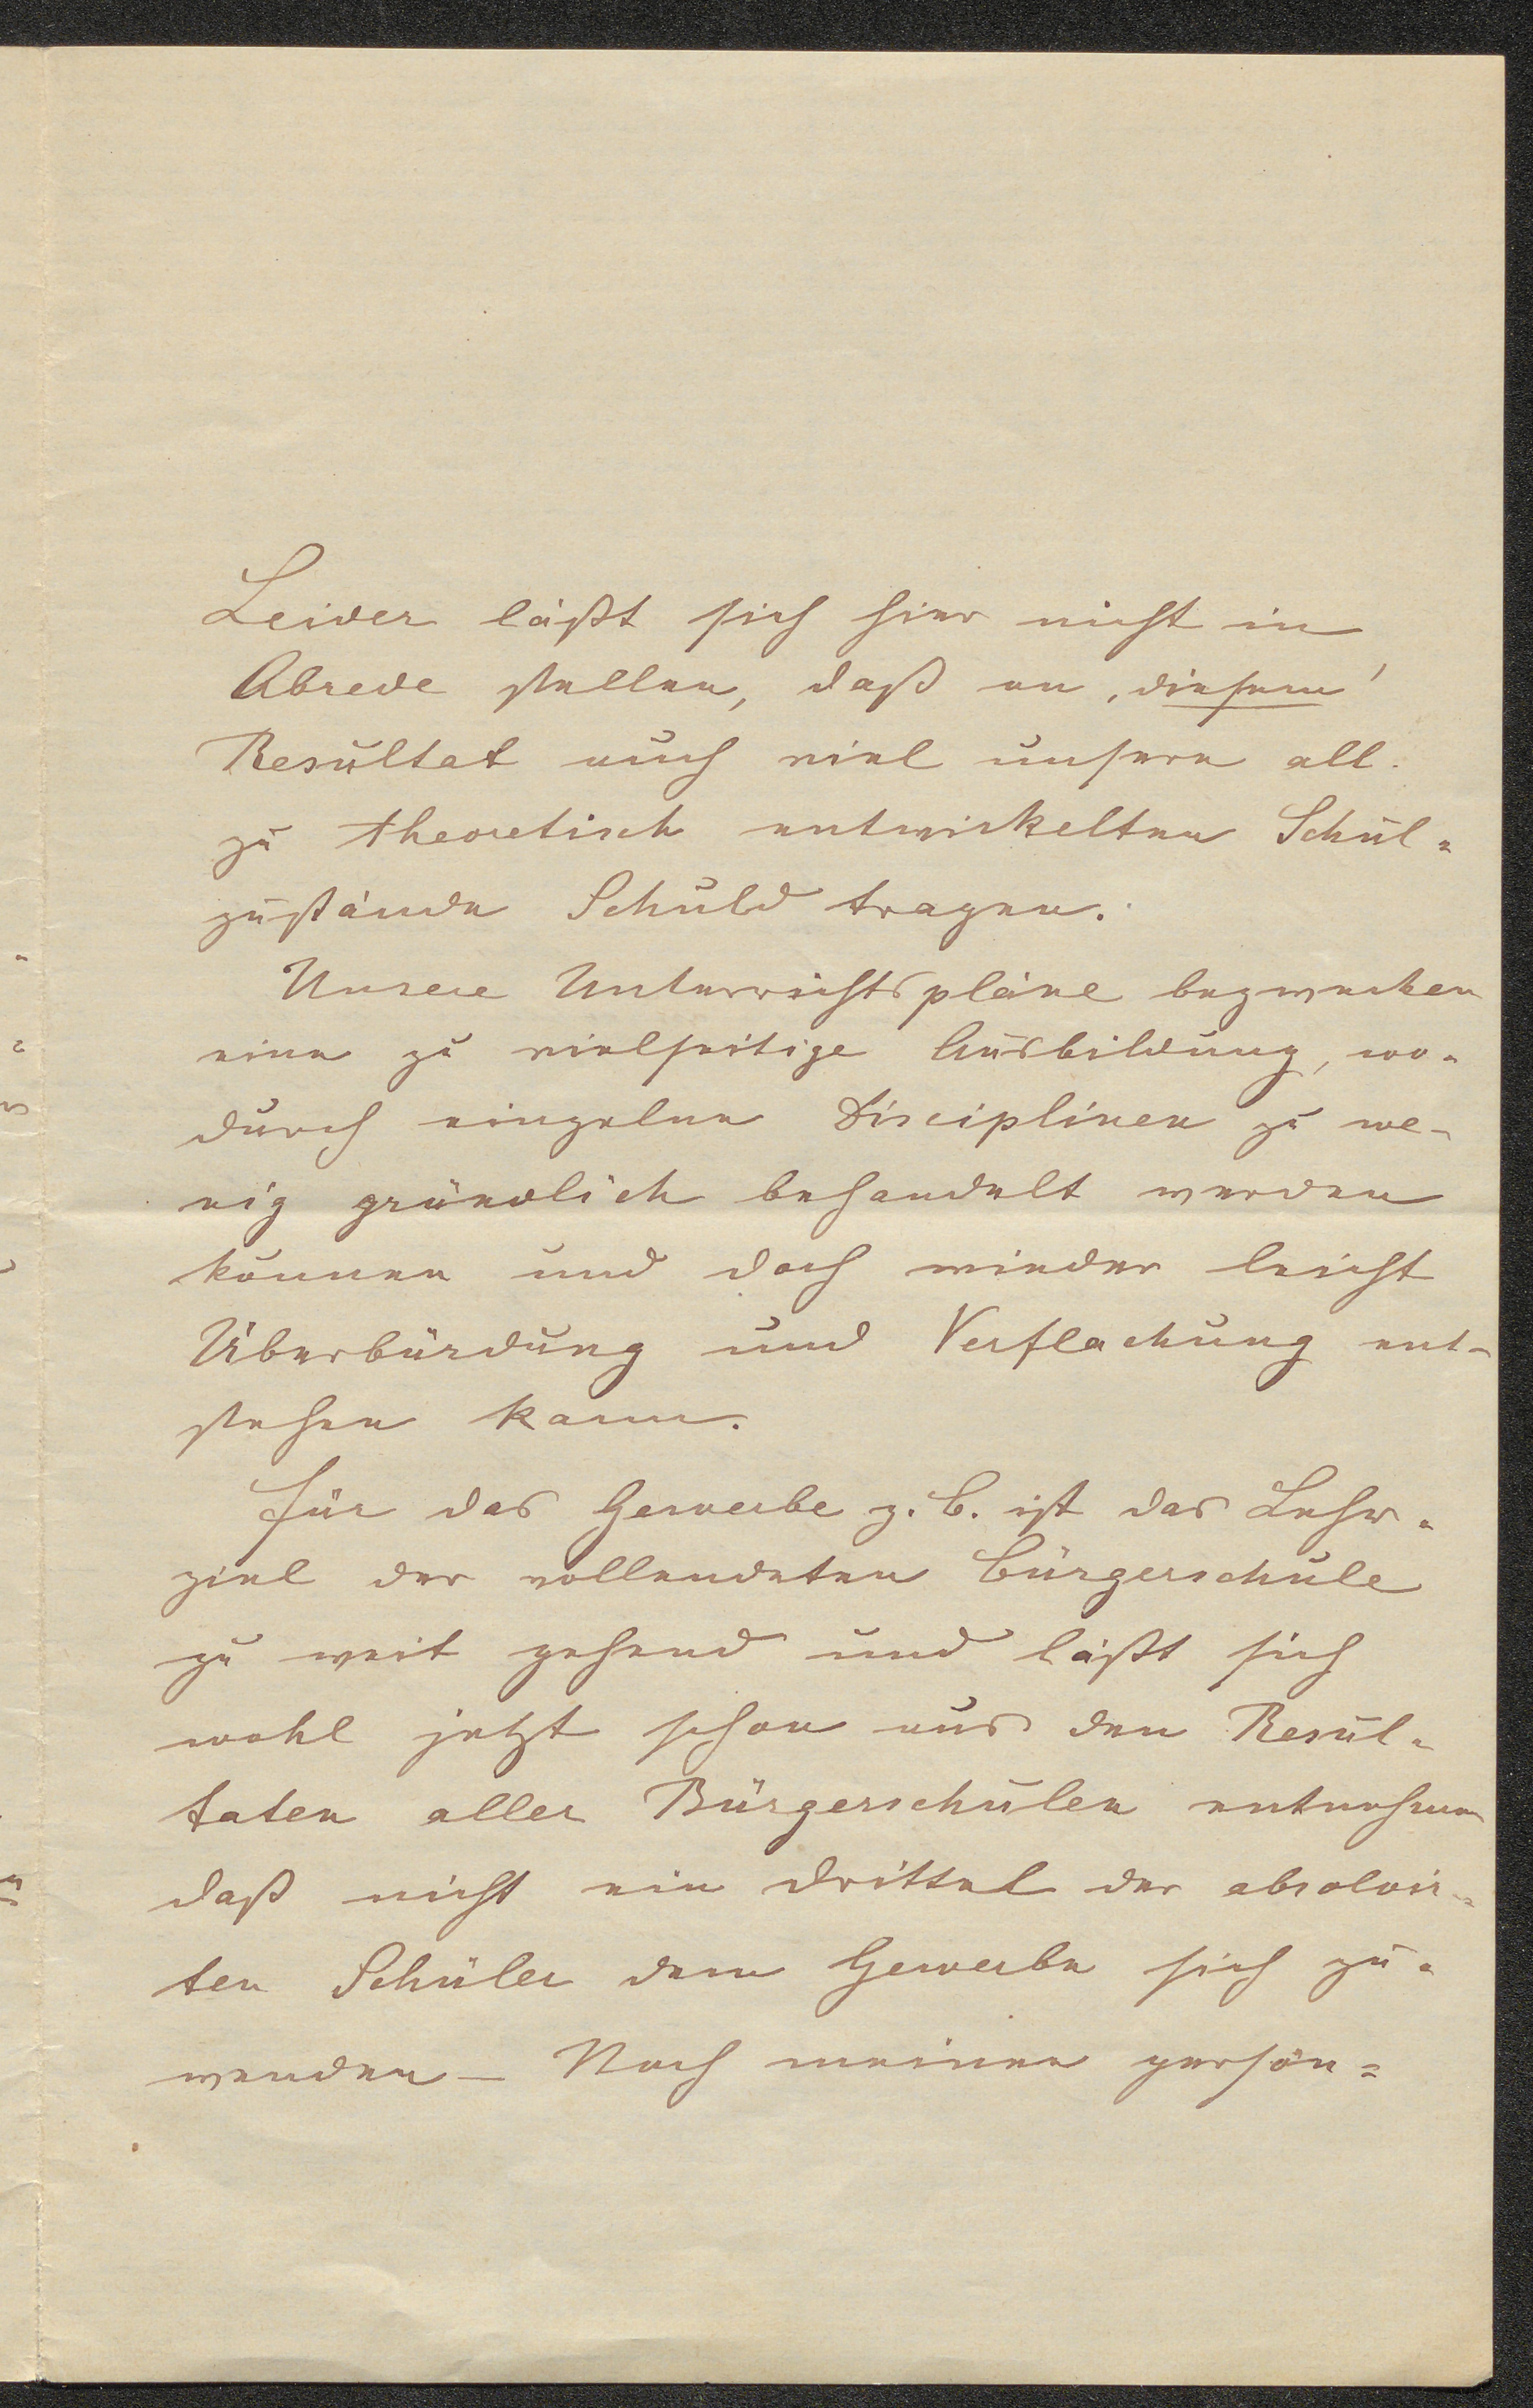 Leider läßt sich hier nicht in
Abrede stellen, daß an ‚diesem'
Resultat auch viel unsere all-
zu theoretisch entwickelten Schul-
zustände Schuld tragen.
Unsere Unterrichtspläne bezwecken
eine zu vielseitige Ausbildung, wo-
durch einzelne Disciplinen zu we-
nig gründlich behandelt werden
können und doch wieder leicht
Überbürdung und Verflachung ent-
stehen kann.
Für das Gewerbe z. B. ist das Lehr-
ziel der vollendeten Bürgerschule
zu weit gehend und läßt sich
wohl jetzt schon aus den Resul-
taten aller Bürgerschulen entnehmen
daß nicht ein Drittel der absolvir-
ten Schüler dem Gewerbe sich zu-
wenden – Nach meinen persön=